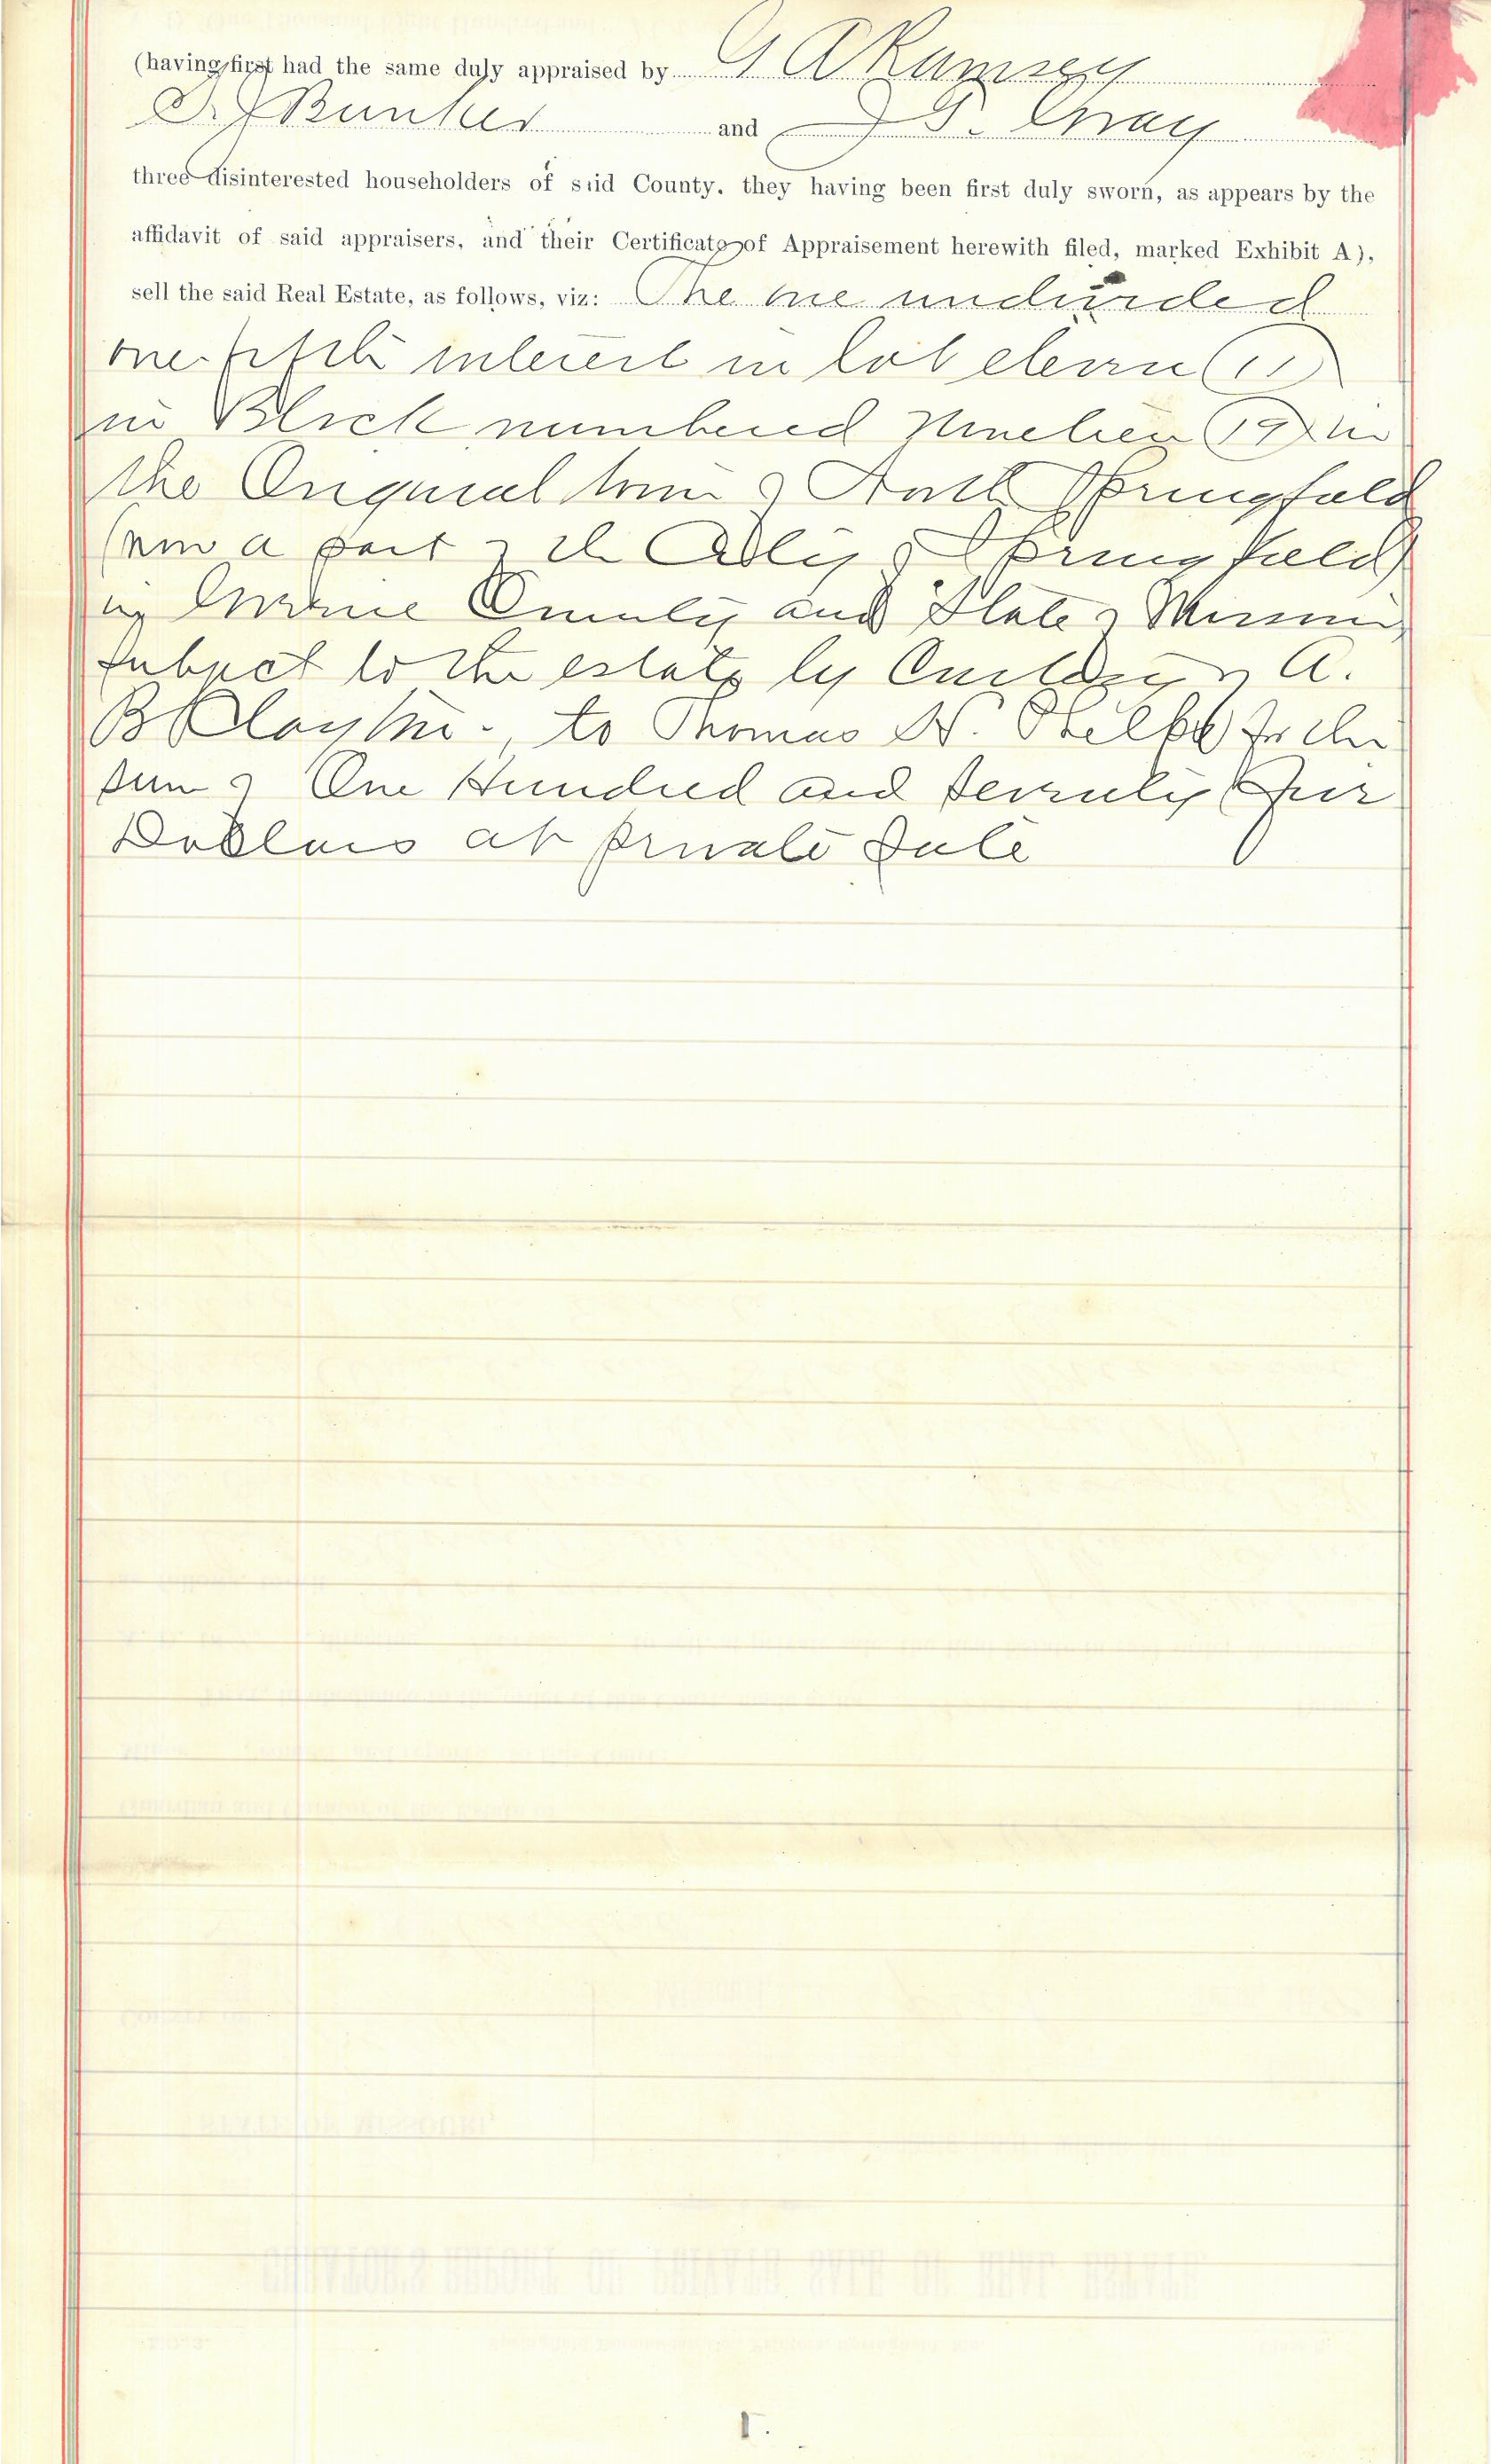 (having first had the same duly appraised by G A Ramsey
D. J Bunker and J T. Gray
three disinterested householders of said County. they having been first duly sworn, as appears by the
affidavit of said appraisers, and their Certificate of Appraisement herewith filed, marked Exhibit A),
sell the said Real Estate, as follows, viz: The one undivided
one fifth interest in lot eleven (11)
in Block numbered Nineteen (19) in
the Original town of North Springfield
(now a part of the City of Springfield)
in Greene County and State of Missouri
subject to the estate by Curtesy of A.
B Clayton., to Thomas N. for the
sum of One Hundred and Seventy five
Dollars at private sale